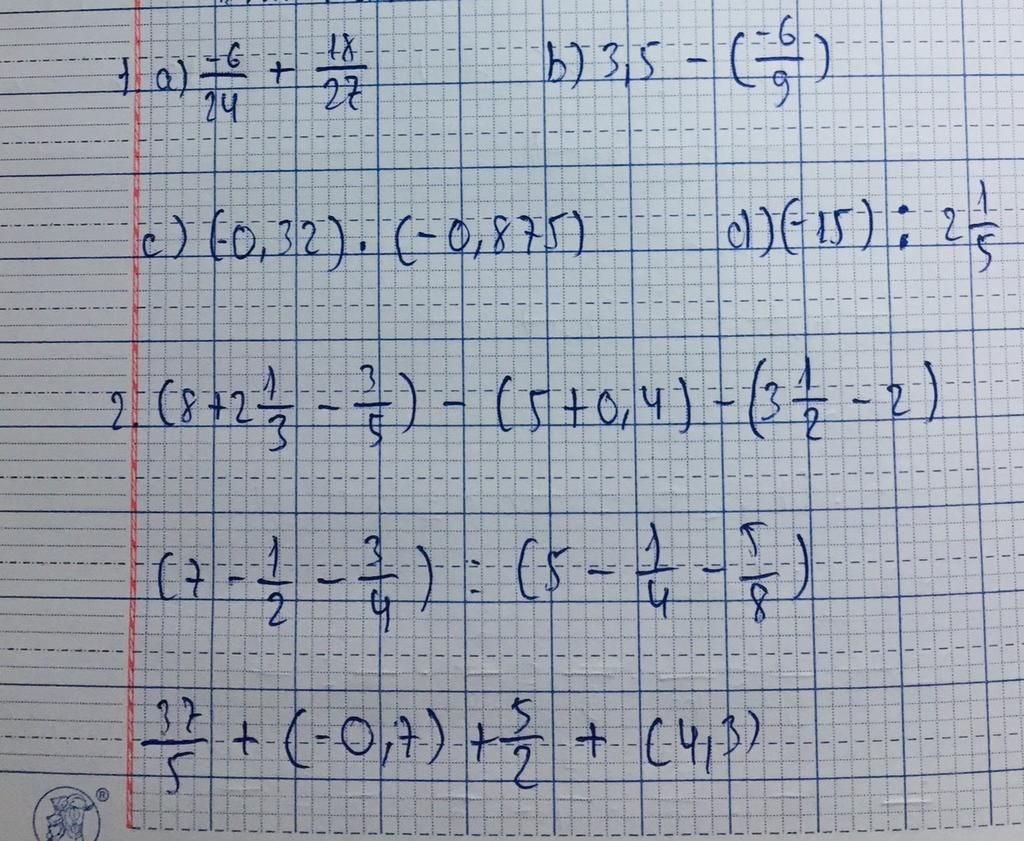 1 a) -6/24 + 18/27 b) 3,5 - (-6/9)
c) (-0,32) . (-0,875) d) (-15) : 2 1/5
2. (8 + 2 1/3 - 3/5) - (5 + 0,4) - (3 1/2 - 2)
(7 - 1/2 - 3/4) : (5 - 1/4 - 5/8)
37/5 + (-0,7) + 5/2 + (4,3)
®